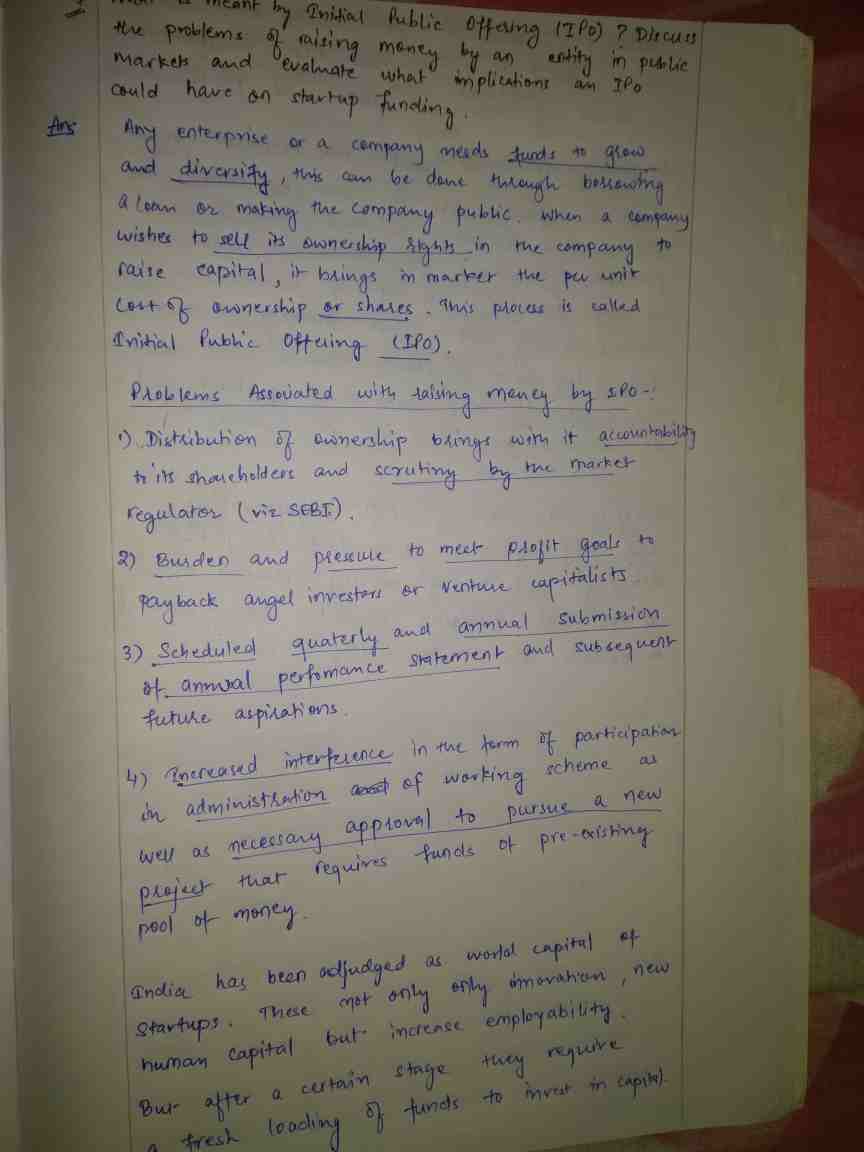 is meant by Initial Public Offering (IPO) ? Discuss
the problems of raising money by an entity in public
markets and evaluate what implications an IPO
could have on startup funding.
Ans Any enterprise or a company needs funds to grow
and diversify, this can be done through borrowing
a loan or making the company public. When a company
wishes to sell its ownership rights in the company to
raise capital, it brings in market the per unit
cost of ownership or shares. This process is called
Initial Public Offering (IPO).
Problems Associated with raising money by IPO -:
1) Distribution of ownership brings with it accountability
to its shareholders and scrutiny by the market
regulator (viz SEBI).
2) Burden and pressure to meet profit goals to
payback angel investors or venture capitalists
3) Scheduled quaterly and annual submission
of annual perfomance statement and subsequent
future aspirations.
4) Increased interference in the form of participation
in administration of working scheme as
well as necessary approval to pursue a new
project that requires funds of pre-existing
pool of money.
India has been adjudged as world capital of
startups. These not only only innovation, new
human capital but increase employability.
But after a certain stage they require
a fresh loading of funds to invest in capital.